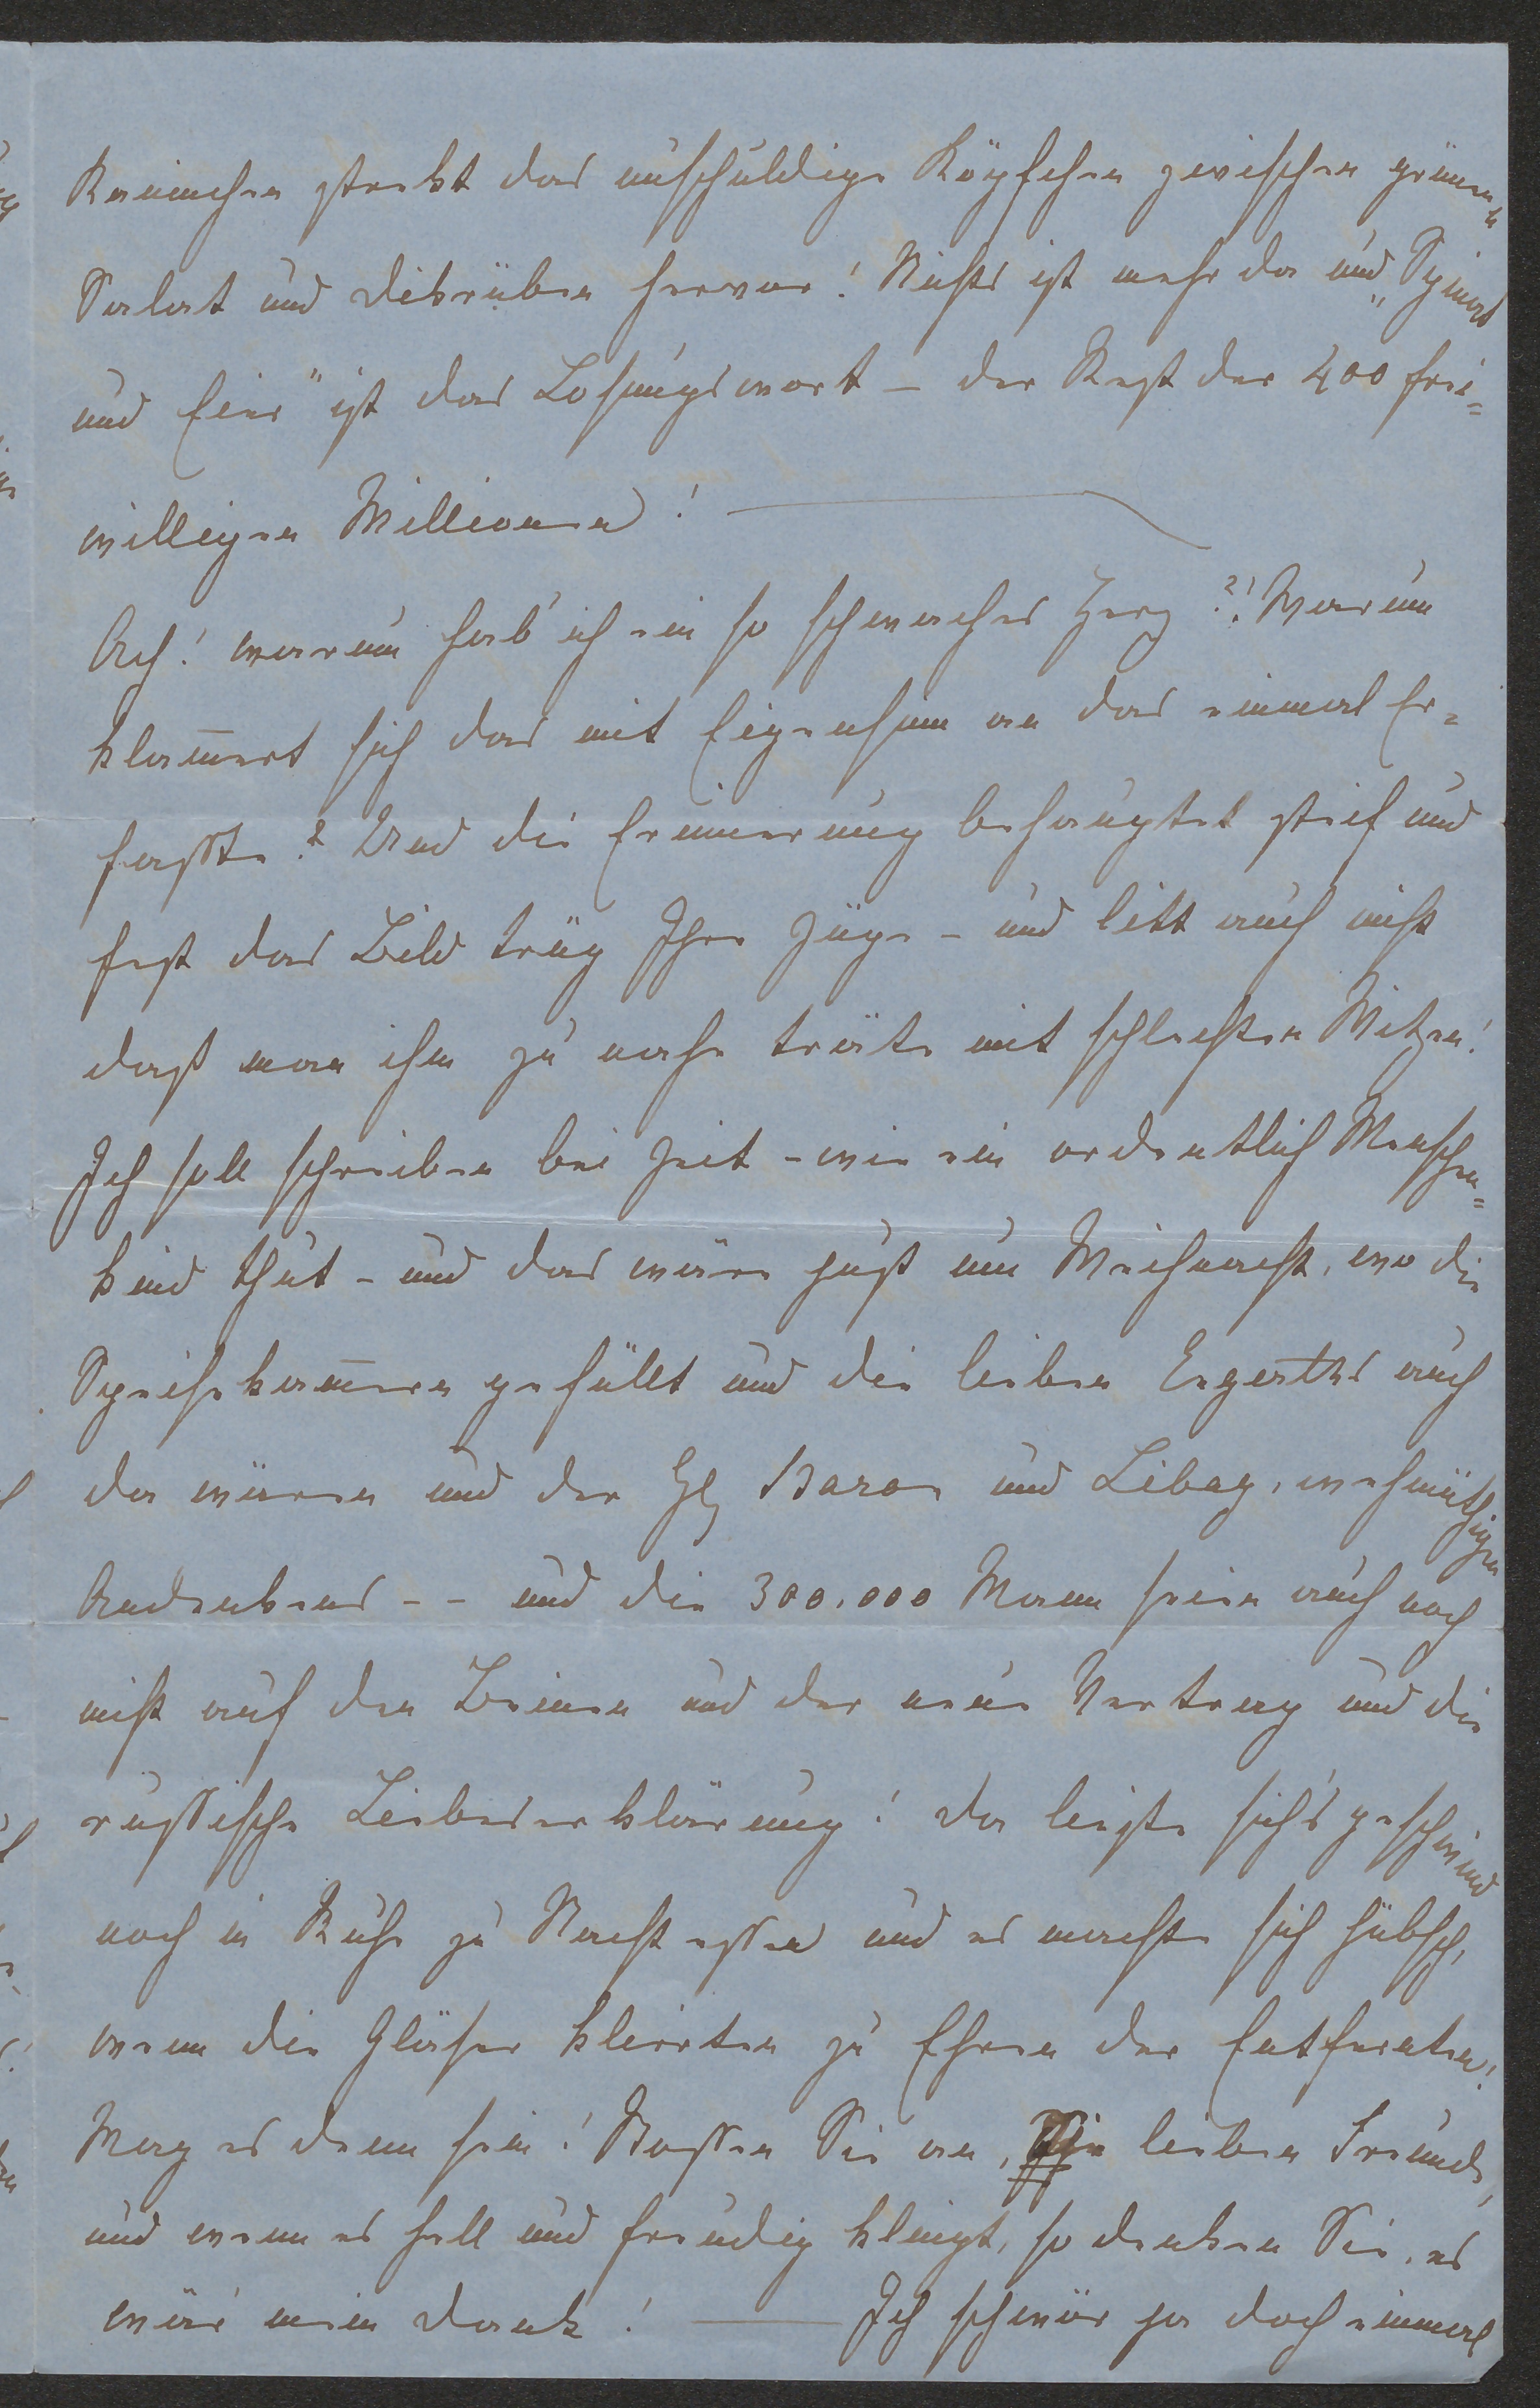 Kaninchen strekt das unschuldige Köpfchen zwischen grünen
Salat und Dikrüben hervor! Nichts ist mehr da und „Spinat
und Eier" ist das Losungswort – der Rest der 400 frei=
willigen Millionen!
Ach! warum hab' ich ein so schwaches Herz?! Warum
klam̅ert sich das mit Eigensinn an das einmal Er=
faßte? Und die Erinnerung behauptet steif und
fest das Bild trüg Ihre Züge – und litt auch nicht
daß man ihm zu nahe träte mit schlechten Witzen!
Ich soll schreiben bei Zeit – wie ein ordentlich Menschen=
kind thut – und das wäre just um Weihnacht, wo die
Speisekam̅ern gefüllt und die lieben Ergerths auch
da wären und der Baron und Libay, wehmüthigen
Andenkens – – und die 300.000 Mann seien auch noch
nicht auf den Beinen und der neue Vertrag und die
russische Liebeserklärung! Da ließe sich's geschwind
noch in Ruhe zu Nacht essen und es machte sich hübsch,
wenn die Gläser klirrten zu Ehren der Entfernten!
Mag es denn sein! Stossen Sie an, lieben Freunde,
und wenn es hell und freudig klingt, so denken Sie, es
wär' mein Dank! – Ich schwör ja doch einmal